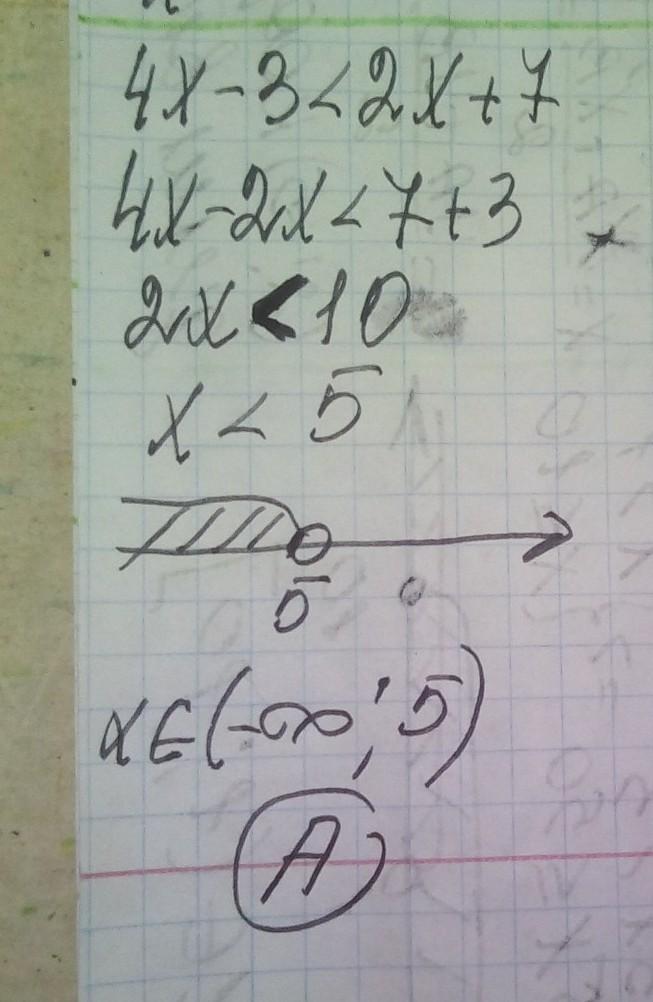 4x-3<2x+7
4x-2x<7+3
2x<10
x<5
5
x∈(-∞;5)
A